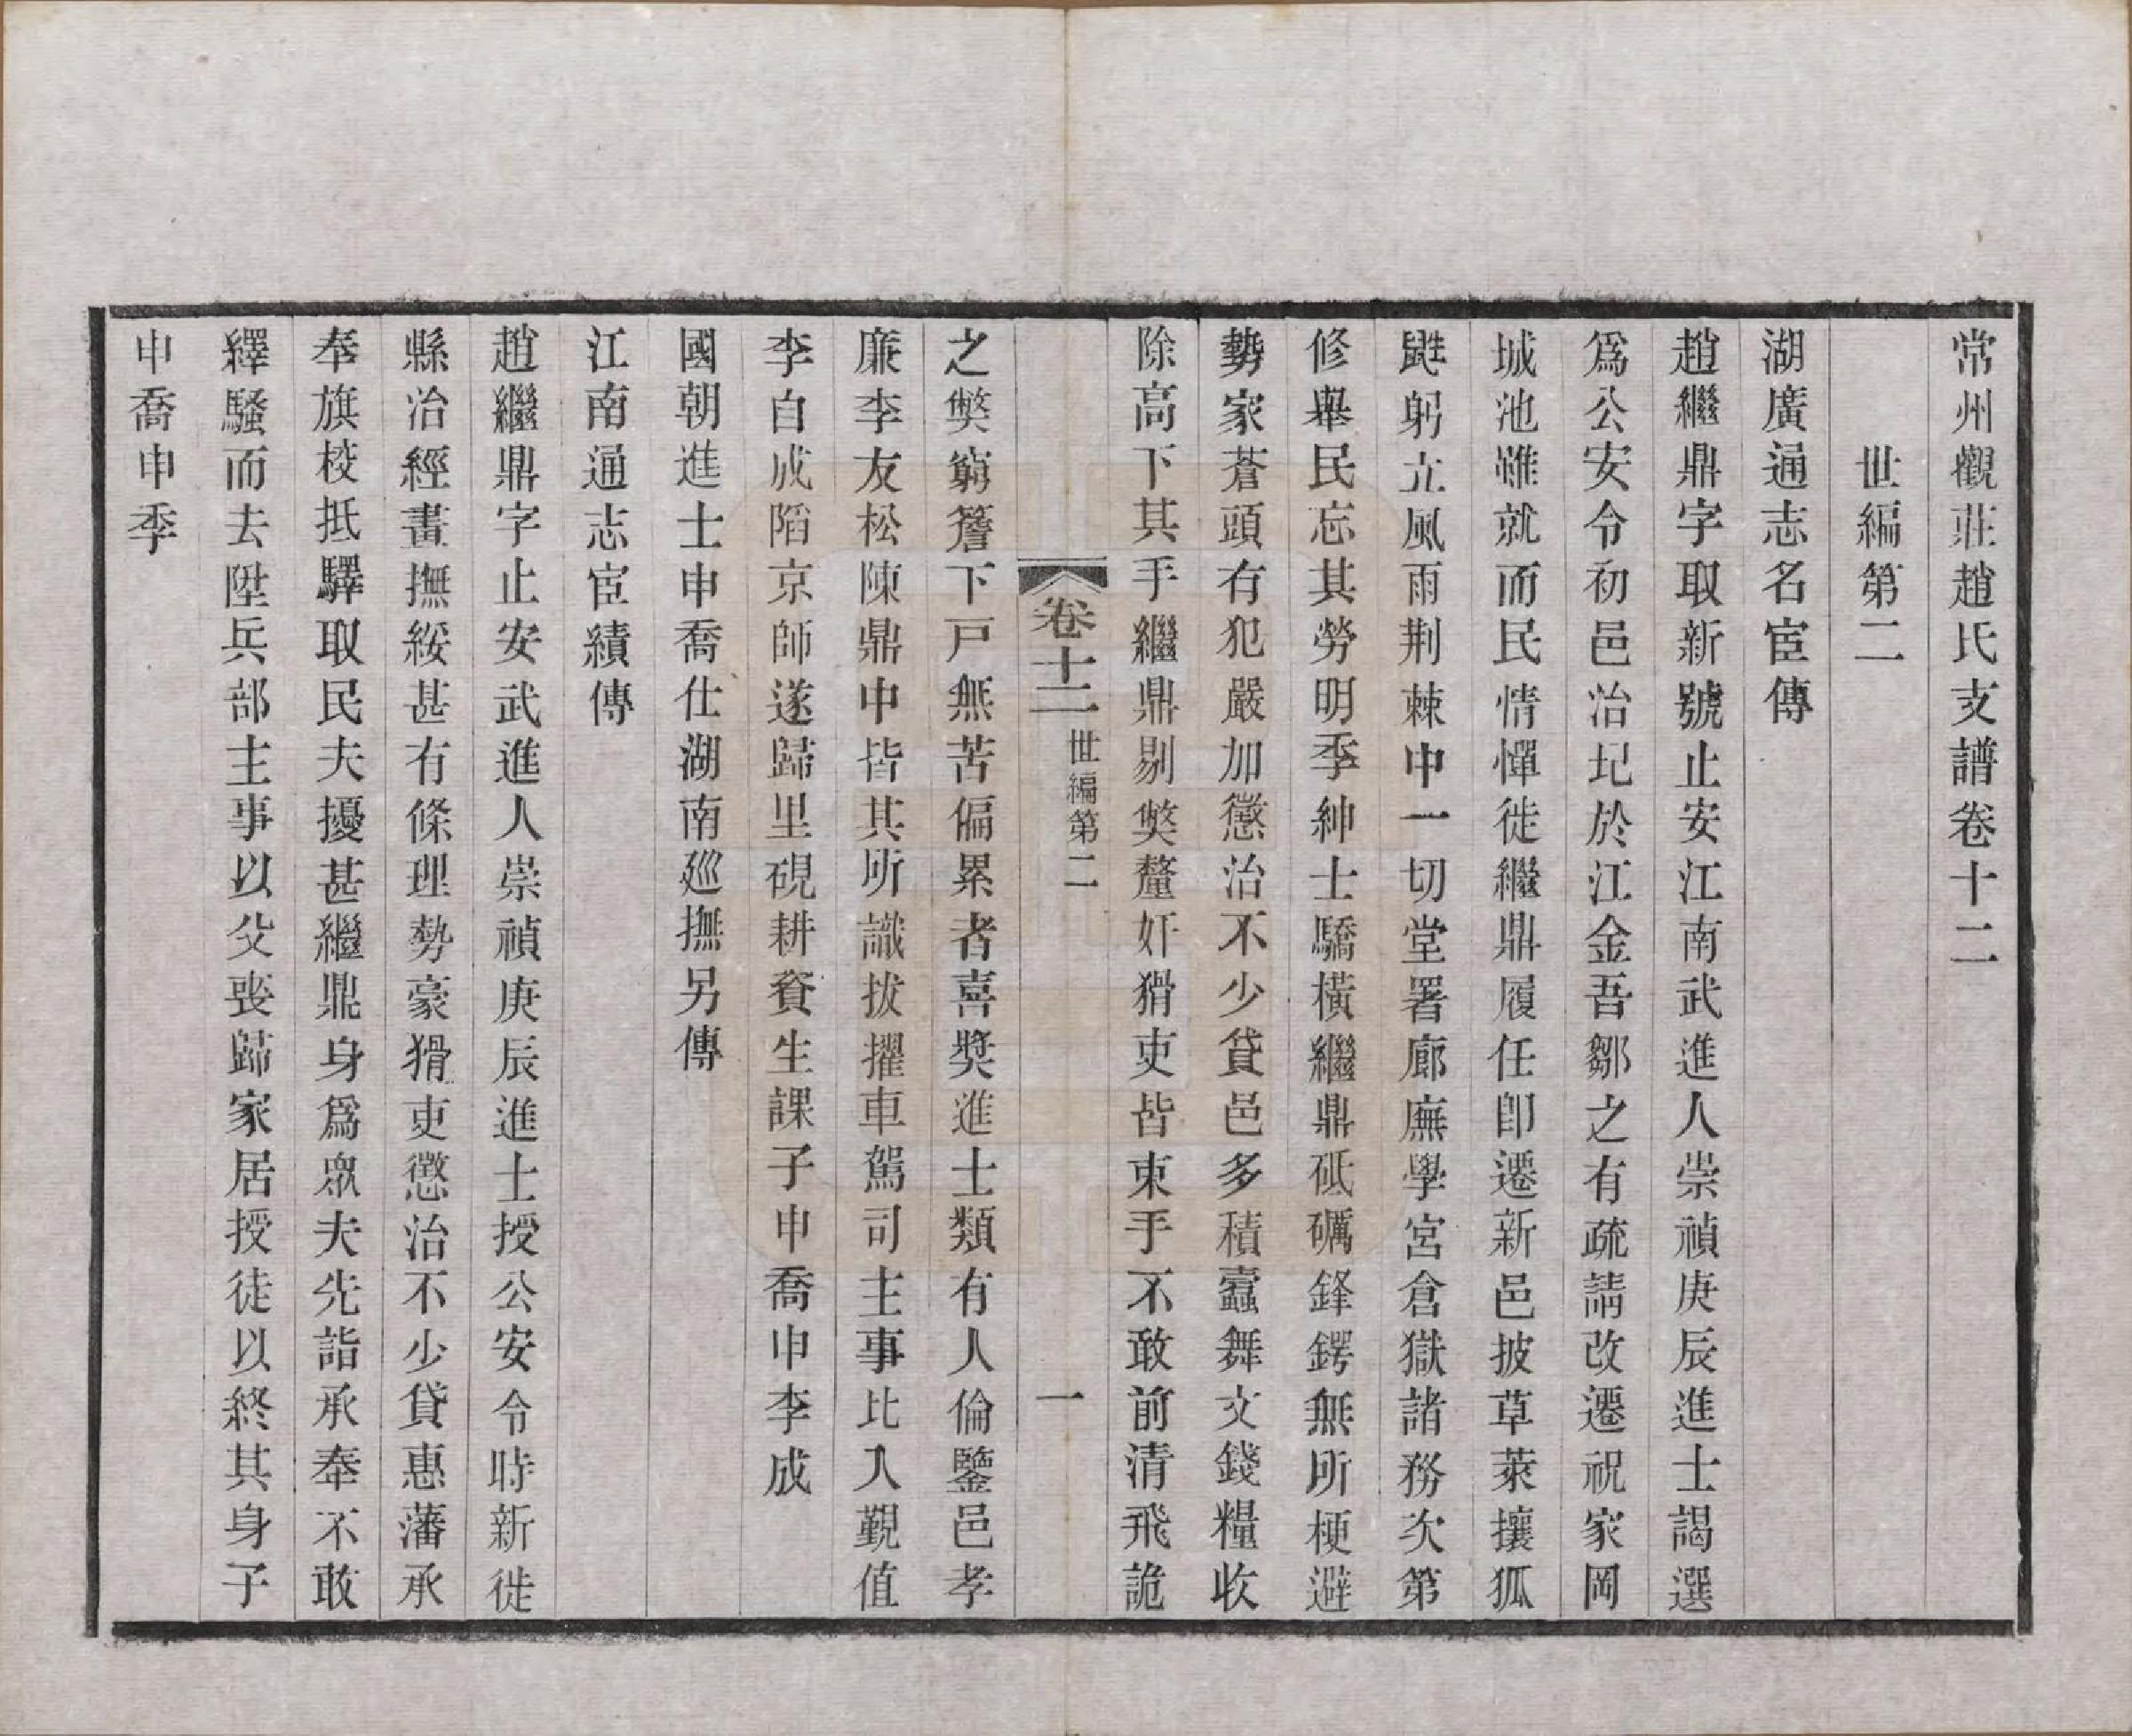 常州觀莊趙氏支譜卷十二
世編第二
湖廣通志名宦傳
趙繼鼎字取新號止安江南武進人崇禎庚辰進士謁選
爲公安令初邑治圮於江金吾鄒之有疏請改遷祝家岡
城池雖就而民情憚徙繼鼎履任卽遷新邑披草萊攘狐
鼪躬立風雨荆棘中一切堂署廊廡學宮倉獄諸務次第
修舉民忘其勞明季紳士驕橫繼鼎砥礪鋒鍔無所梗避
勢家蒼頭有犯嚴加懲治不少貸邑多積蠹舞文錢糧收
除高下其手繼鼎剔獘釐奸猾吏皆束手不敢前清飛詭
卷十二
世編第二
一
之獘窮簷下戸無苦偏累者喜獎進士類有人倫鑒邑孝
廉李友松陳鼎中皆其所識拔擢車駕司主事比入覲值
李自成陷京師遂歸里硯耕資生課子申喬申季成
國朝進士申喬仕湖南廵撫另傳
江南通志宦績傳
趙繼鼎字止安武進人崇禎庚辰進士授公安令時新徙
縣治經畫撫綏甚有條理勢豪猾吏懲治不少貸惠藩承
奉旗校抵驛取民夫擾甚繼鼎身爲眾夫先詣承奉不敢
繹騷而去陞兵部主事以父喪歸家居授徒以終其身子
申喬申季